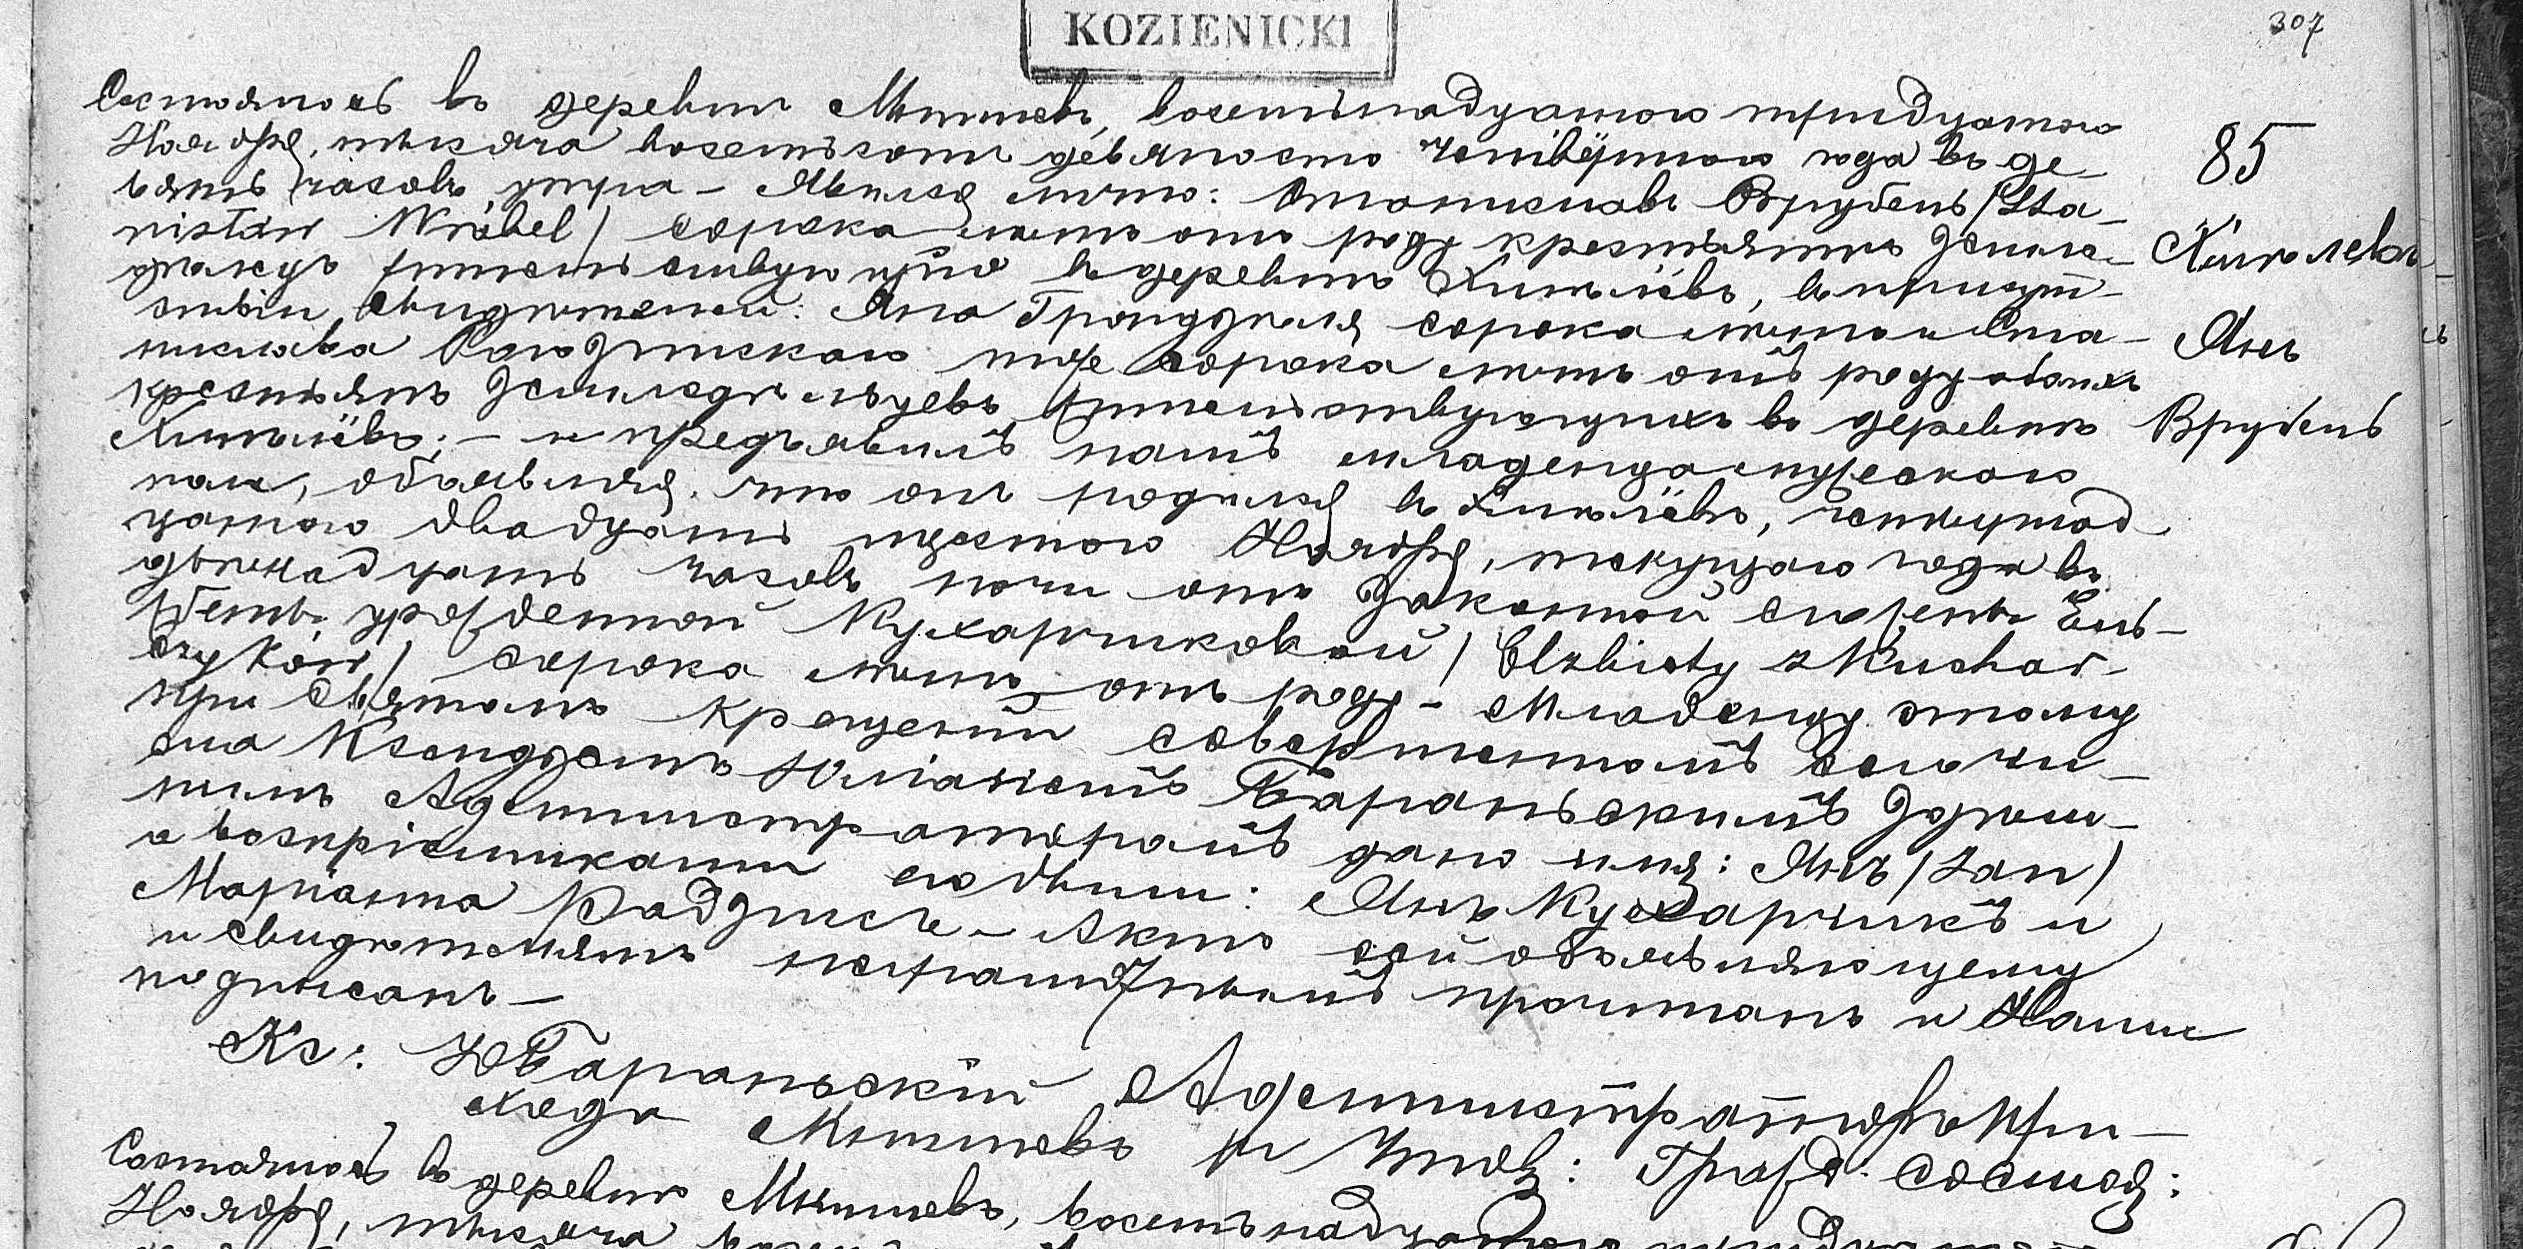 KOZIENICKI
307
Состоялось въ деревни Мнишевъ, восемьнадцатого тридцатого
Ноября, тысяча восемьсотъ девяносто четвёртого года въ де-
вять часовъ утра - Явился лично: Станиславъ Врубель /Sta-
nisław Wróbel/ сорока лѣтъ отъ роду крестьянинъ Землe-
дѣлецъ жительствующій въ деревнѣ, въ присут-
ствіи свидѣтелей: Яна сорока лѣтъ и Ста-
нислава тоже сорока лѣтъ отъ роду обоихъ
крестьянъ Земледѣльцевъ жительствующихъ въ деревнѣ
- и предъявилъ намъ младенца мужескаго
пола, объявляя, что онъ родился въ, четырнад
цатого двадцать шестого Ноября, текущаго года въ
двѣнадцать часовъ ночи отъ Законной супруги Ель-
жбеты урожденной Кухарчиковой /Elżbiety z Kuchar-
czyków/ сорока лѣтъ отъ роду - Младенцу этому
при Святомъ крещеніи совершенномъ сего чи-
сла Ксендзомъ Юліаномъ Бараньскимъ Здѣш-
нимъ Администраторомъ дано имя: Янъ /Jan/
а воспріемниками были: Янъ Кухарчикъ и
Маріанна - Актъ сей объявляющему
и свидѣтелямъ неграмотнымъ прочитанъ и Нами
подписанъ -
Кс: Ю Бараньскій Администраторъ При-
хода Мнишевъ и: Гражд. состоя:
85
Янъ
Врубель
Состоялось въ деревнѣ Мнишевъ, восемьнадцатого
Ноября, тысяча